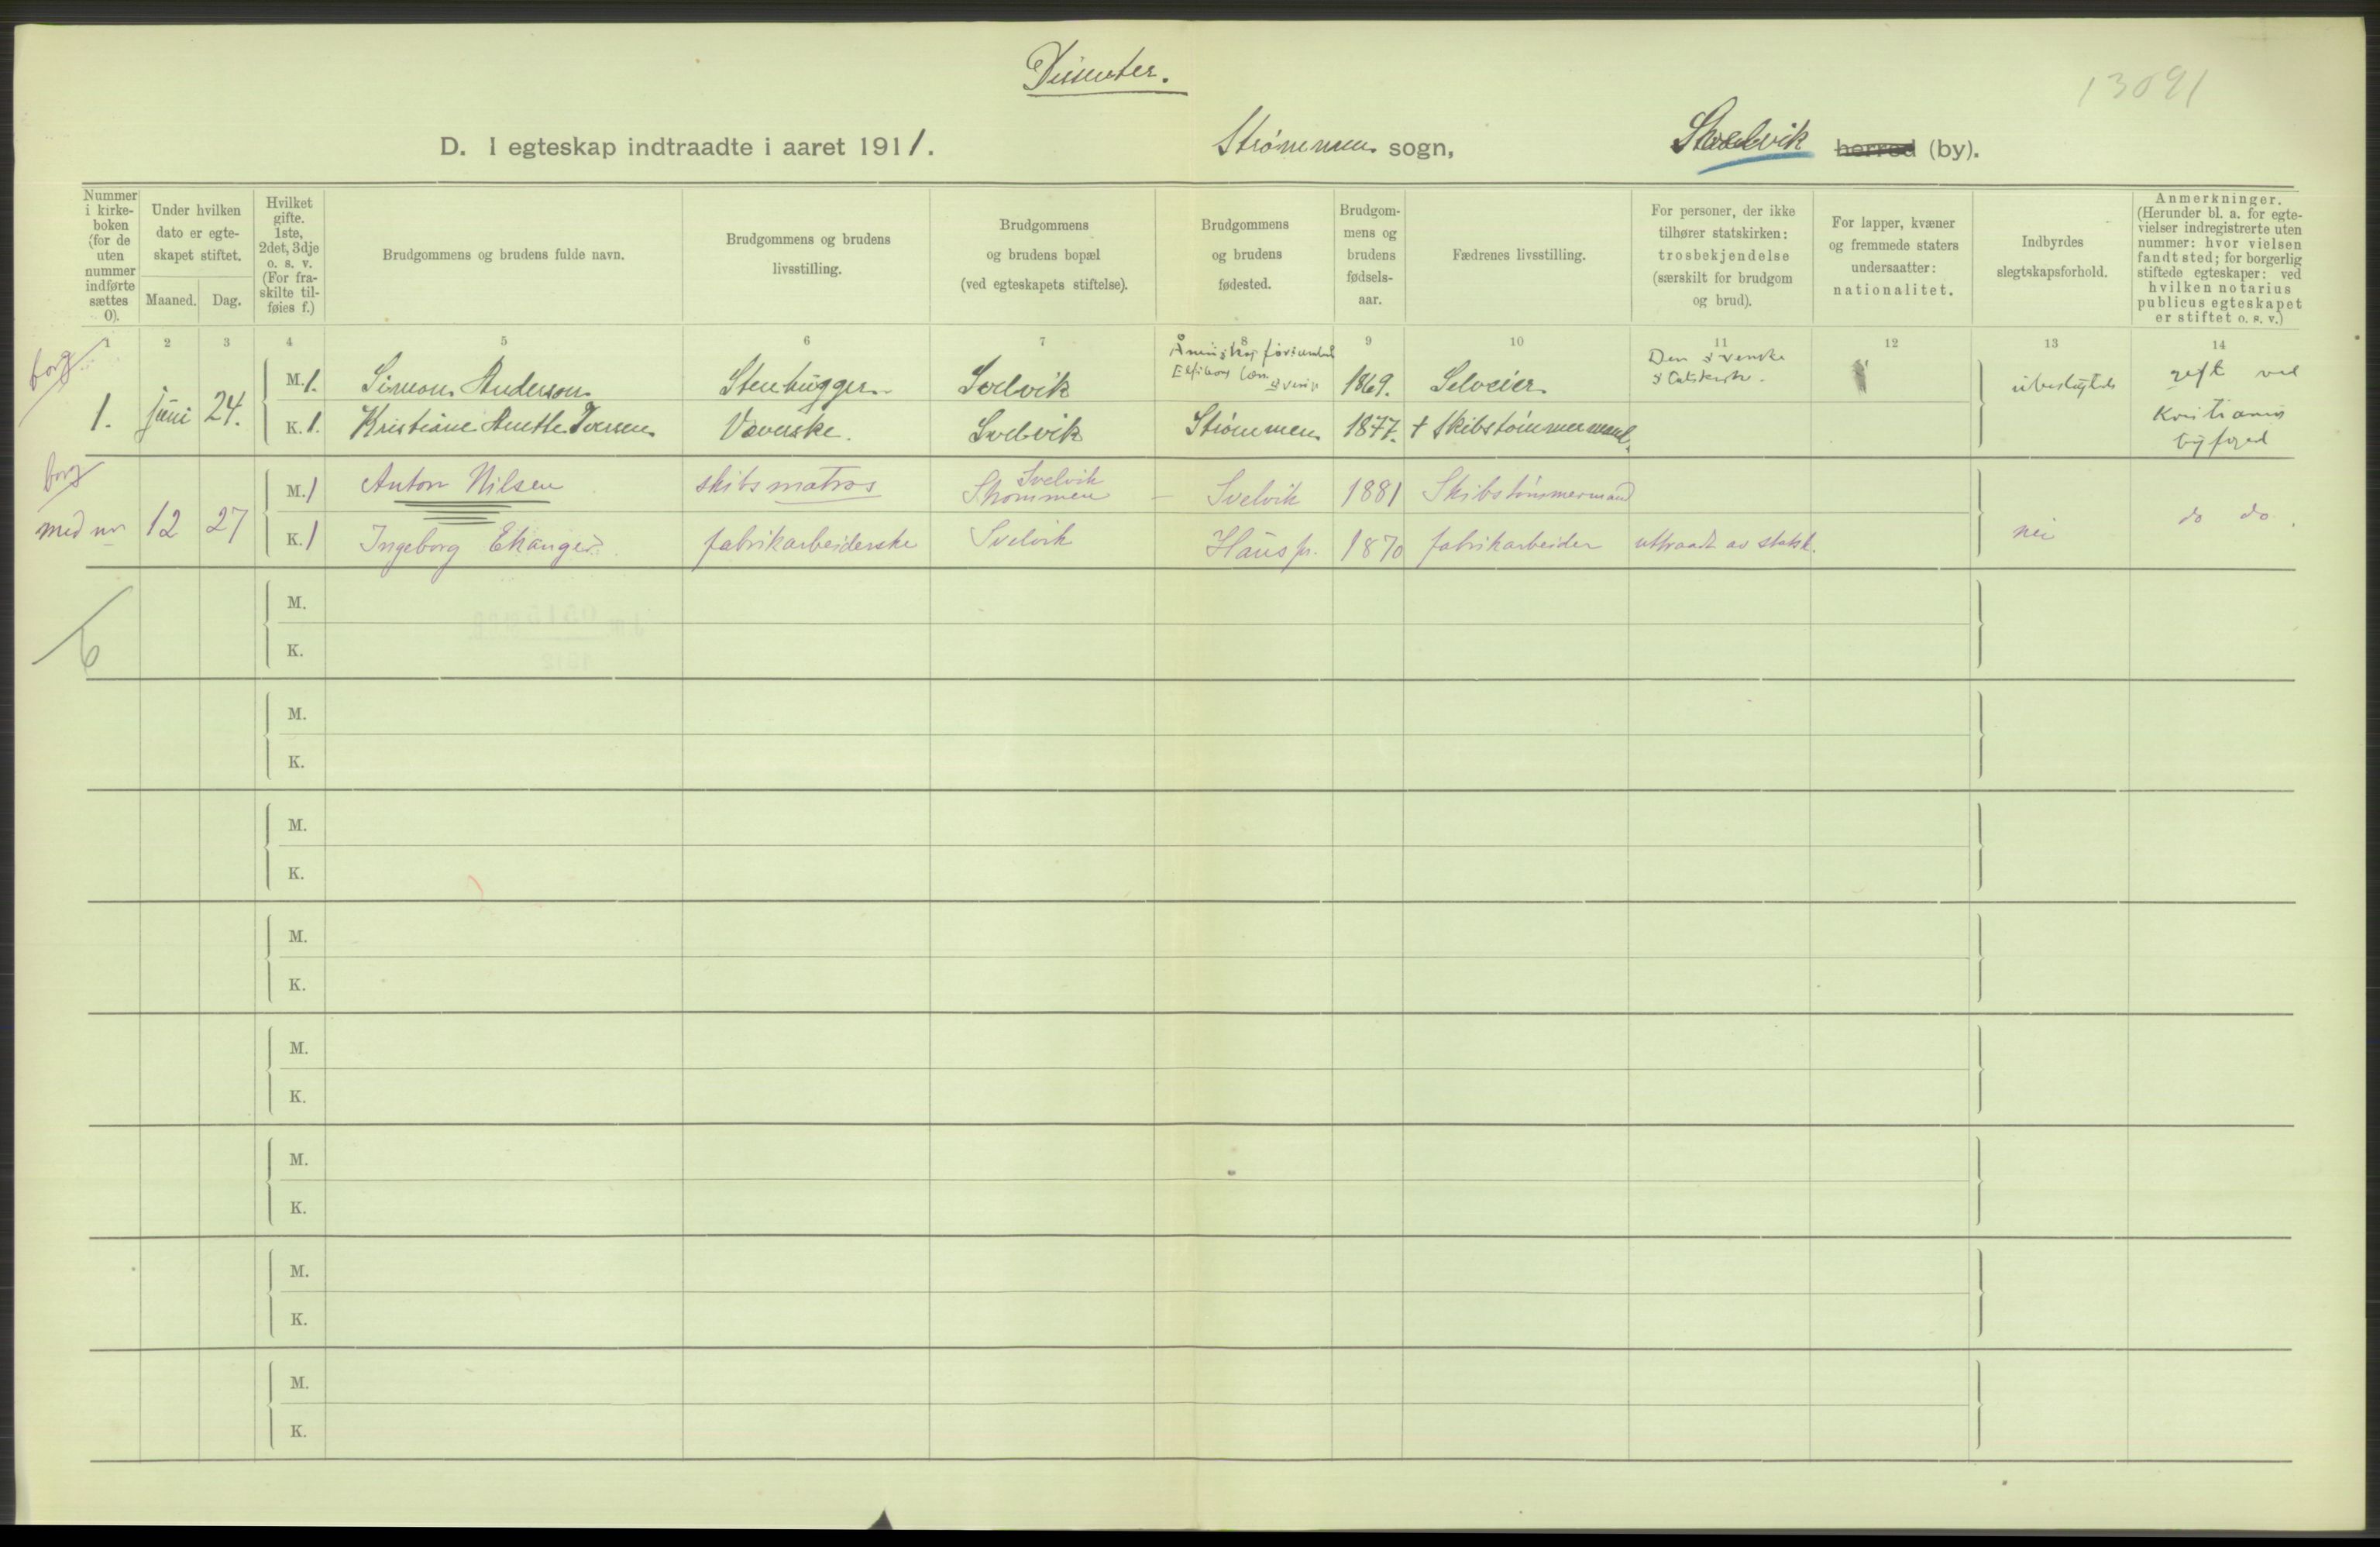 Dissenter.
13091
D. I egteskap indtraadte i aaret 1911. Strømmen sogn, Svelvik herred (by).
Nummer i kirkeboken (for de uten nummer indførte sættes 0).
Under hvilken dato er egteskapet stiftet.
Maaned. Dag.
Hvilket gifte. 1ste, 2det, 3dje o. s. v. (For fraskilte tilføies f.)
Brudgommens og brudens fulde navn.
Brudgommens og brudens livsstilling.
Brudgommens og brudens bopæl (ved egteskapets stiftelse).
Brudgommens og brudens fødested.
Brudgommens og brudens fødselsaar.
Fædrenes livsstilling.
For personer, der ikke tilhører statskirken: trosbekjendelse (særskilt for brudgom og brud).
For lapper, kvæner og fremmede staters undersaatter: nationalitet.
Indbyrdes slegtskapsforhold.
Anmerkninger. (Herunder bl. a. for egtevielser indregistrerte uten nummer: hvor vielsen fandt sted; for borgerlig stiftede egteskaper: ved hvilken notarius publicus egteskapet er stiftet o. s. v.)
1 2 3 4 5 6 7 8 9 10 11 12 13 14
borg
1. juni 24.
M. 1. Simon Anderson Stenhugger Svelvik 1869. Selveier Den svenske Statskirke. ubeslegtede gift ved
K. 1. Kristiane Anette Iversen Væverske. Svelvik Strømmen 1877. † Skibstømmermand. Kristiania byfoged
borg
med nr 12 27
M. 1 Anton Nilsen skibsmatros Svelvik Strømmen – Svelvik 1881 Skibstømmermand
K. 1 Ingeborg Ekanger fabrikarbeiderske Svelvik Haus pr. 1870 fabrikarbeider uttraadt av statsk. nei do do.
6
M.
K.
M.
K.
M.
K.
M.
K.
M.
K.
M.
K.
M.
K.
M.
K.